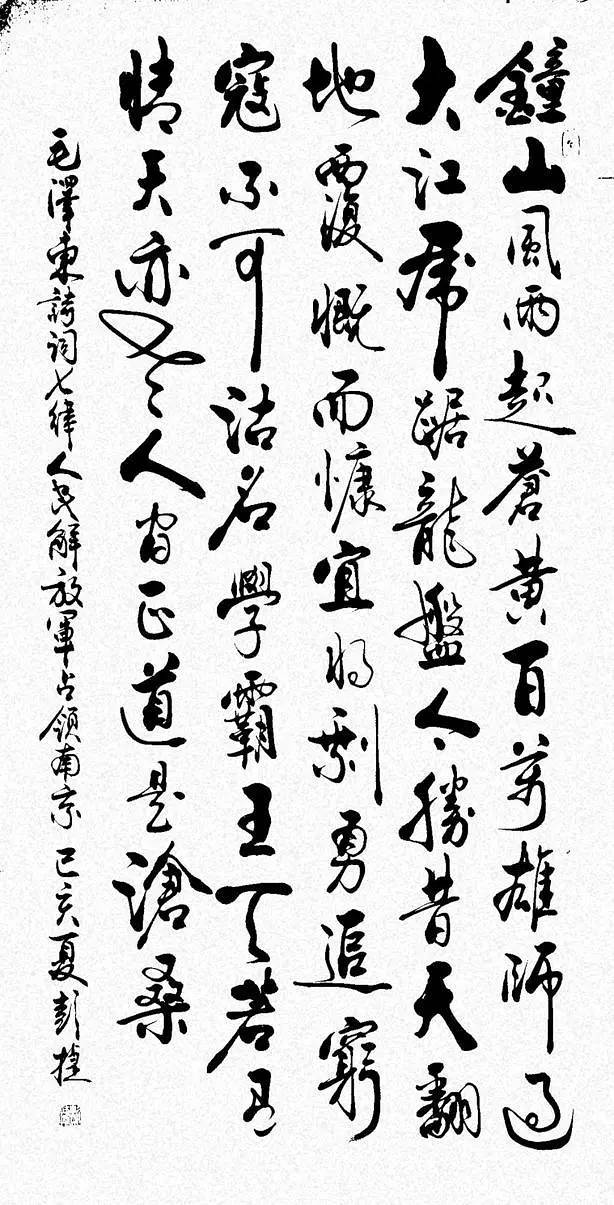 鐘山風雨起蒼黄百萬雄師過
大江虎踞龍盤今勝昔天翻
地覆慨而慷宜将剩勇追窮
寇不可沽名學霸王天若有
情天亦老人间正道是滄桑
毛澤東詩词七律人民解放軍占領南京 己亥夏彭捷